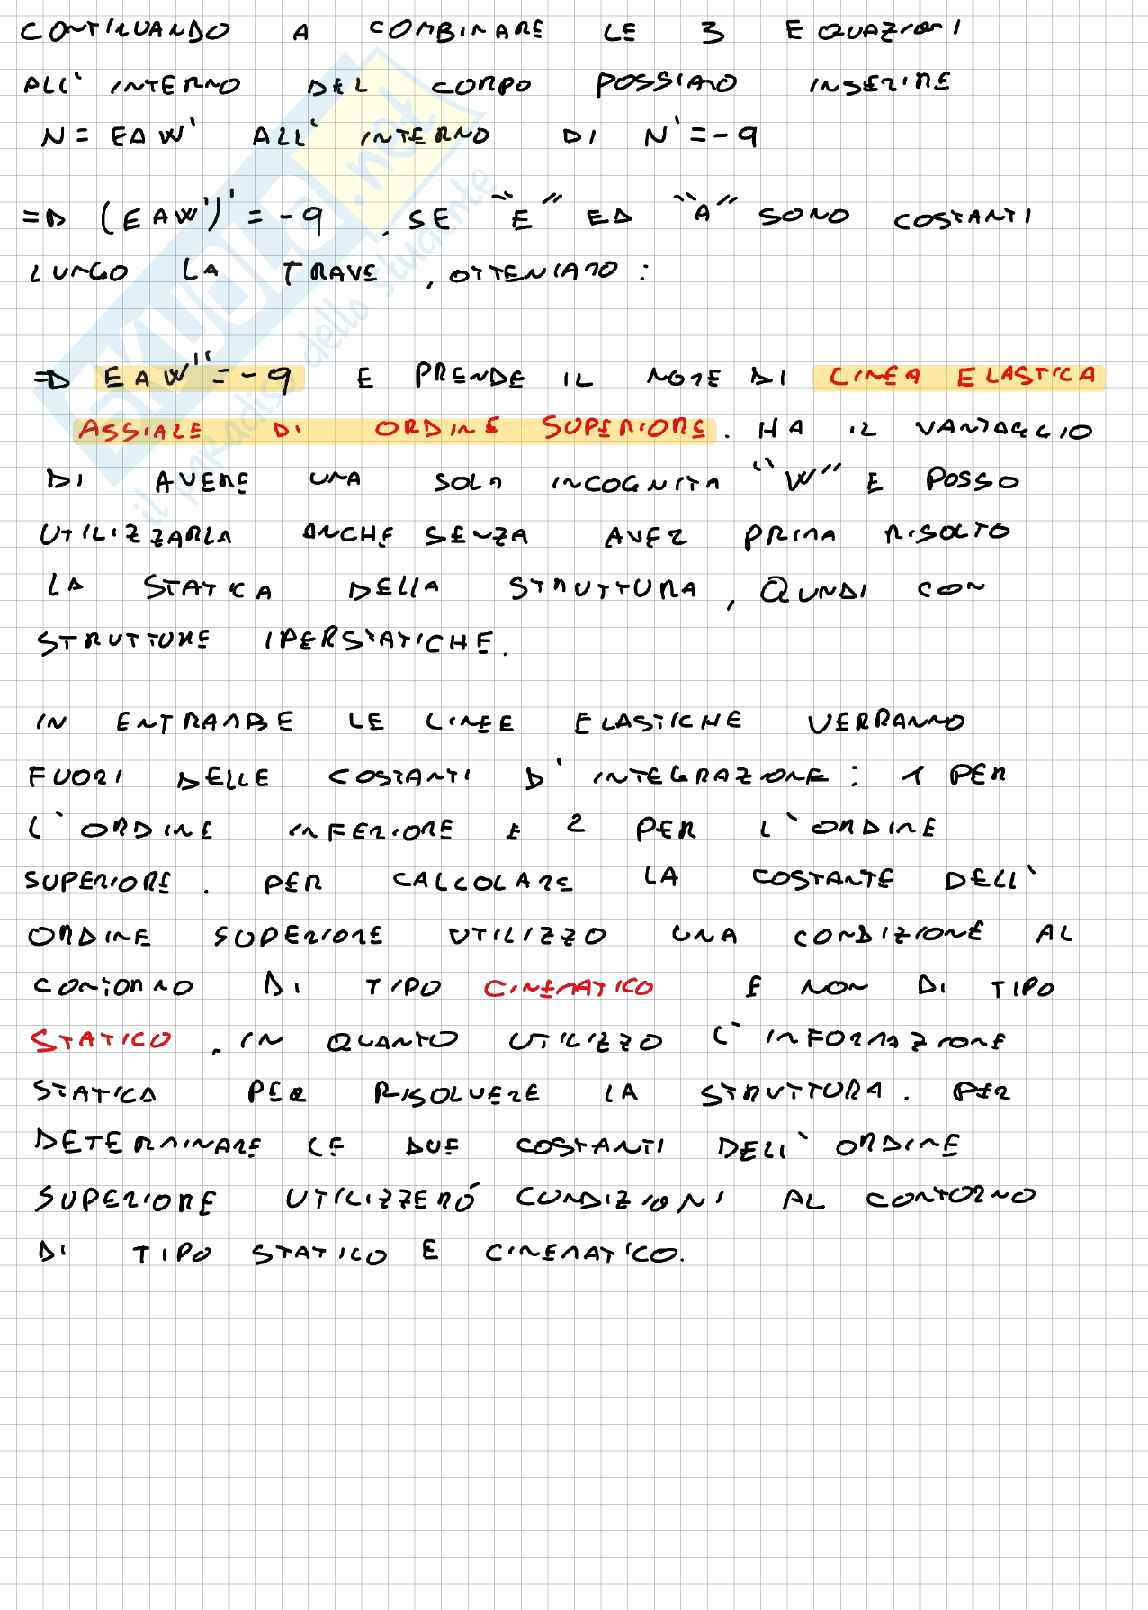 CONTINUANDO A COMBINARE LE 3 EQUAZIONI
ALL' INTERNO DEL CORPO POSSIAMO INSERIRE
N = EAW' ALL' INTERNO DI N' = -q
=D (EAW')' = -q . SE "E" ED "A" SONO COSTANTI
LUNGO LA TRAVE , OTTENIAMO :
=D EAW'' = -q E PRENDE IL NOME DI LINEA ELASTICA
ASSIALE DI ORDINE SUPERIORE . HA IL VANTAGGIO
DI AVERE UNA SOLA INCOGNITA "W" E POSSO
UTILIZZARLA ANCHE SENZA AVER PRIMA RISOLTO
LA STATICA DELLA STRUTTURA , QUNDI CON
STRUTTURE IPERSTATICHE .
IN ENTRAMBE LE LINEE ELASTICHE VERRANNO
FUORI DELLE COSTANTI D' INTEGRAZIONE : 1 PER
L' ORDINE INFERIORE E 2 PER L' ORDINE
SUPERIORE . PER CALCOLARE LA COSTANTE DELL'
ORDINE SUPERIORE UTILIZZO UNA CONDIZIONE AL
CONTORNO DI TIPO CINEMATICO E NON DI TIPO
STATICO . IN QUANTO UTILIZZO L' INFORMAZIONE
STATICA PER RISOLVERE LA STRUTTURA . PER
DETERMINARE LE DUE COSTANTI DELL' ORDINE
SUPERIORE UTILIZZERÓ CONDIZIONI AL CONTORNO
DI TIPO STATICO E CINEMATICO.
SKUOLA.net
il paradiso dello studente